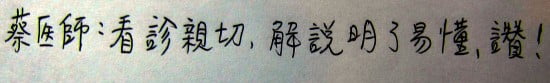 蔡医師：看診親切，解說明了易懂，讚！